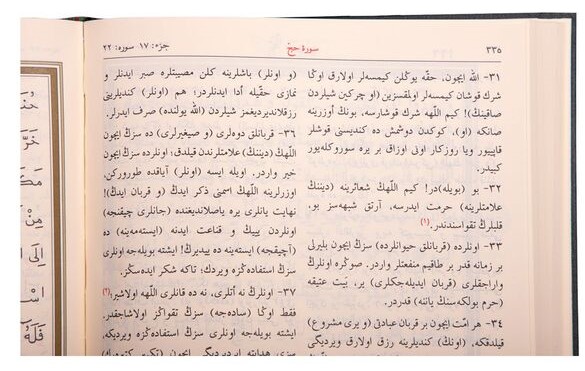 ٣٣٥
سورهٔ حج
جزء: ١٧ سوره: ٢٢
٣١- الله ایچون، حقّه یوكلن كیمسه‌لر اولارق اوڭا
شرك قوشان كیمسه‌لر اولمقسزین (او چركین شیلردن
صاقینڭ)! كیم اللّٰهه شرك قوشارسه، بونڭ اوزرینه
صانكه (او)، كوكدن دوشمش ده كندیسنی قوشلر
قاپییور ویا روزكار اونی اوزاق بر یره سوروكله‌یور
كبیدر.
٣٢- بو (بویله)در! كیم اللّٰهڭ شعائرینه (دیننڭ
علامتلرینه) حرمت ایدرسه، آرتق شبهه‌سز بو،
قلبلرڭ تقواسندندر. (١)
٣٣- اونلرده (قربانلق حیوانلرده) سزڭ ایچون بلیرلی
بر زمانه قدر بر طاقیم منفعتلر واردر. صوڭره اونلرڭ
واراجقلری (قربان ایدیله‌جكلری) یر، بَیت عتیقه
(حرم بولكه‌سنڭ یاننه) قدردر.
٣٤- هر امّت ایچون بر قربان عبادتی (و یری مشروع)
قیلدقكه، (اونڭ) كندیلرینه رزق اولارق ویردیگی
(و اونلر) باشلرینه كلن مصیبتلره صبر ایدنلر و
نمازی حقّیله أدا ایدنلردر؛ هم (اونلر) كندیلرینی
رزقلاندیردیغمز شیلردن (الله یولنده) صرف ایدرلر.
٣٦- قربانلق دوه‌لری (و صیغیرلری) ده سزڭ ایچون
اللّٰهڭ (دیننڭ) علامتلرندن قیلدق؛ اونلرده سزڭ ایچون
خیر واردر. اویله ایسه (اونلر) آیاقده طوروركن
اوزرلرینه اللّٰهڭ اسمنی ذكر ایدڭ (و قربان ایدڭ)!
نهایت یانلری یره یاصلاندیغنده (جانلری چیقنجه)
اونلردن ییڭ و قناعت ایدنه (ایسته‌مه‌ینه) ده
(آچیقجه) ایسته‌ینه ده ییدیرڭ! ایشته بویله‌جه اونلری
سزڭ استفاده‌ڭزه ویردك؛ تاكه شكر ایده‌سڭز.
٣٧- اونلرڭ نه أتلری، نه ده قانلری اللّٰهه اولاشیر؛ (٢)
فقط اوڭا (ساده‌جه) سزڭ تقواڭز اولاشاجقدر.
ایشته بویله‌جه اونلری سزڭ استفاده‌ڭزه ویردیكه،